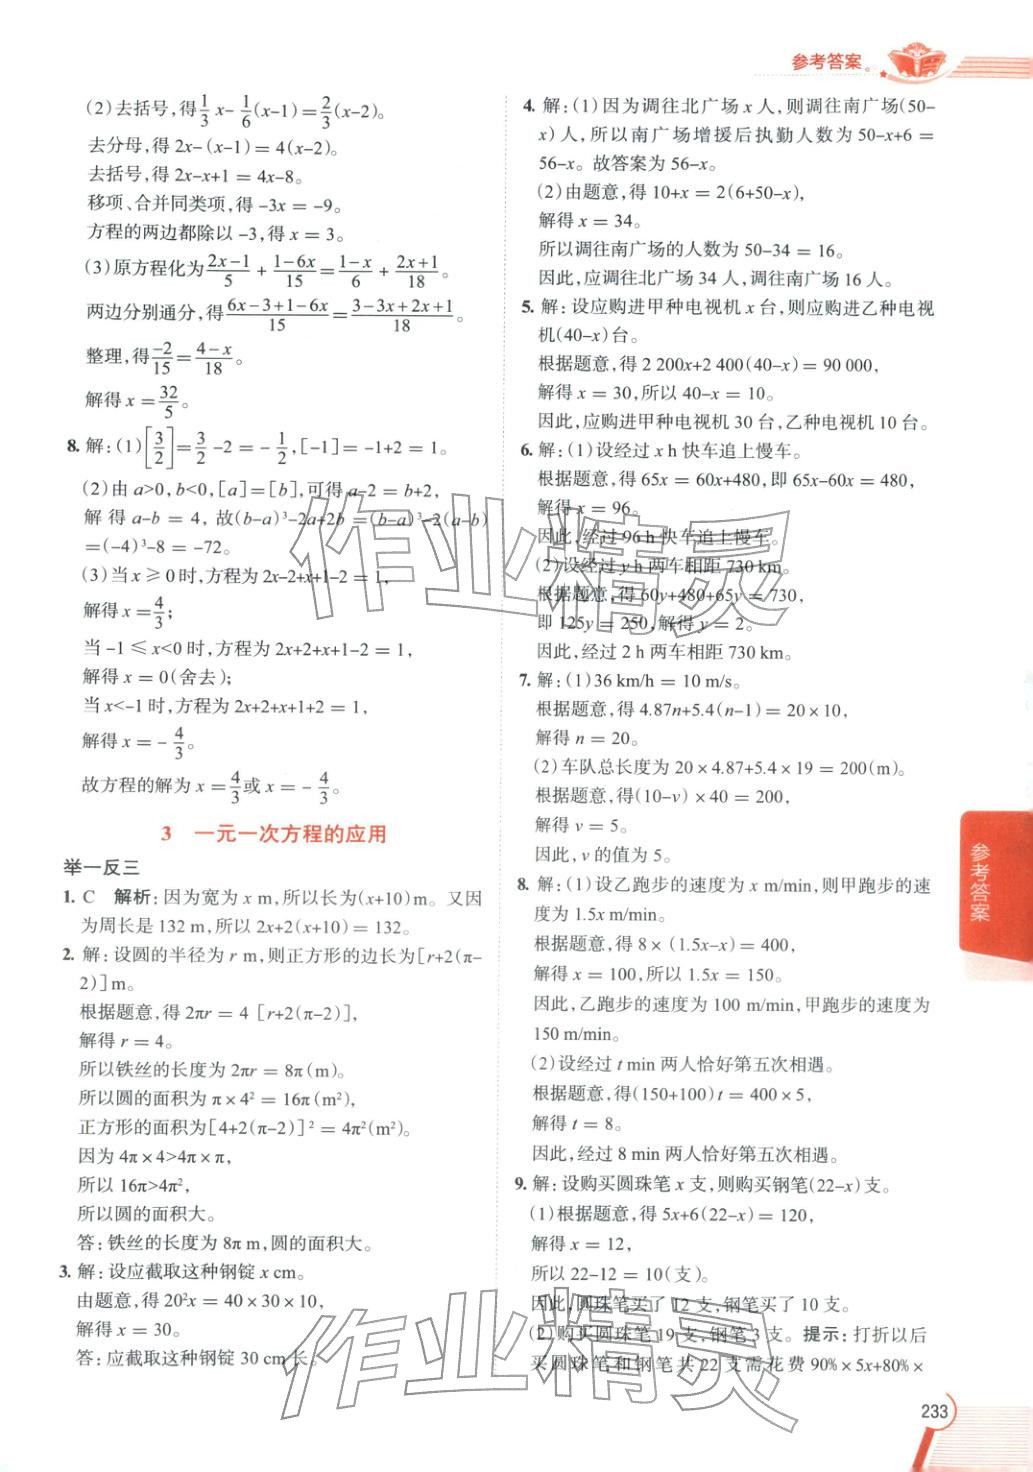 参考答案
(2)去括号,得1/3 x-1/6(x-1)=2/3(x-2)。
去分母,得 2x-(x-1)=4(x-2)。
去括号,得 2x-x+1=4x-8。
移项、合并同类项,得 -3x=-9。
方程的两边都除以 -3,得 x=3。
(3)原方程化为(2x-1)/5+(1-6x)/15=(1-x)/6+(2x+1)/18。
两边分别通分,得(6x-3+1-6x)/15=(3-3x+2x+1)/18。
整理,得-2/15=(4-x)/18。
解得 x=32/5。
8. 解:(1)[3/2]=3/2-2=-1/2,[-1]=-1+2=1。
(2)由 a>0,b<0,[a]=[b],可得 a-2=b+2,
解得 a-b=4,故(b-a)³-2a+2b=(b-a)³-2(a-b)
=(-4)³-8=-72。
(3)当 x⩾0时,方程为 2x-2+x+1-2=1,
解得 x=4/3;
当 -1⩽x<0时,方程为 2x+2+x+1-2=1,
解得 x=0(舍去);
当 x<-1时,方程为 2x+2+x+1+2=1,
解得 x=-4/3。
故方程的解为 x=4/3或 x=-4/3。
3 一元一次方程的应用
举一反三
1. C 解析:因为宽为 x m,所以长为(x+10)m。又因
为周长是 132 m,所以 2x+2(x+10)=132。
2. 解:设圆的半径为 r m,则正方形的边长为[r+2(π-
2)]m。
根据题意,得 2πr=4[r+2(π-2)],
解得 r=4。
所以铁丝的长度为 2πr=8π(m)。
所以圆的面积为 π×4²=16π(m²),
正方形的面积为[4+2(π-2)]²=4π²(m²)。
因为 4π×4>4π×π,
所以 16π>4π²,
所以圆的面积大。
答:铁丝的长度为 8π m,圆的面积大。
3. 解:设应截取这种钢锭 x cm。
由题意,得 20²x=40×30×10,
解得 x=30。
答:应截取这种钢锭 30 cm长。
4. 解:(1)因为调往北广场 x 人,则调往南广场(50-
x)人,所以南广场增援后执勤人数为 50-x+6=
56-x。故答案为 56-x。
(2)由题意,得 10+x=2(6+50-x),
解得 x=34。
所以调往南广场的人数为 50-34=16。
因此,应调往北广场 34 人,调往南广场 16 人。
5. 解:设应购进甲种电视机 x 台,则应购进乙种电视
机(40-x)台。
根据题意,得 2 200x+2 400(40-x)=90 000,
解得 x=30,所以 40-x=10。
因此,应购进甲种电视机 30 台,乙种电视机 10 台。
6. 解:(1)设经过 x h 快车追上慢车。
根据题意,得 65x=60x+480,即 65x-60x=480,
解得 x=96。
因此,经过 96 h 快车追上慢车。
(2)设经过 y h 两车相距 730 km。
根据题意,得 60y+480+65y=730,
即 125y=250,解得 y=2。
因此,经过 2 h 两车相距 730 km。
7. 解:(1)36 km/h=10 m/s。
根据题意,得 4.87n+5.4(n-1)=20×10,
解得 n=20。
(2)车队总长度为 20×4.87+5.4×19=200(m)。
根据题意,得(10-v)×40=200,
解得 v=5。
因此,v 的值为 5。
8. 解:(1)设乙跑步的速度为 x m/min,则甲跑步的速
度为 1.5x m/min。
根据题意,得 8×(1.5x-x)=400,
解得 x=100,所以 1.5x=150。
因此,乙跑步的速度为 100 m/min,甲跑步的速度为
150 m/min。
(2)设经过 t min 两人恰好第五次相遇。
根据题意,得(150+100)t=400×5,
解得 t=8。
因此,经过 8 min 两人恰好第五次相遇。
9. 解:设购买圆珠笔 x 支,则购买钢笔(22-x)支。
(1)根据题意,得 5x+6(22-x)=120,
解得 x=12,
所以 22-12=10(支)。
因此,圆珠笔买了 12 支,钢笔买了 10 支。
(2)购买圆珠笔 19 支,钢笔 3 支。提示:打折以后
买圆珠笔和钢笔共 22 支需花费 90%×5x+80%×
参考答案
233
作业精灵
作业精灵